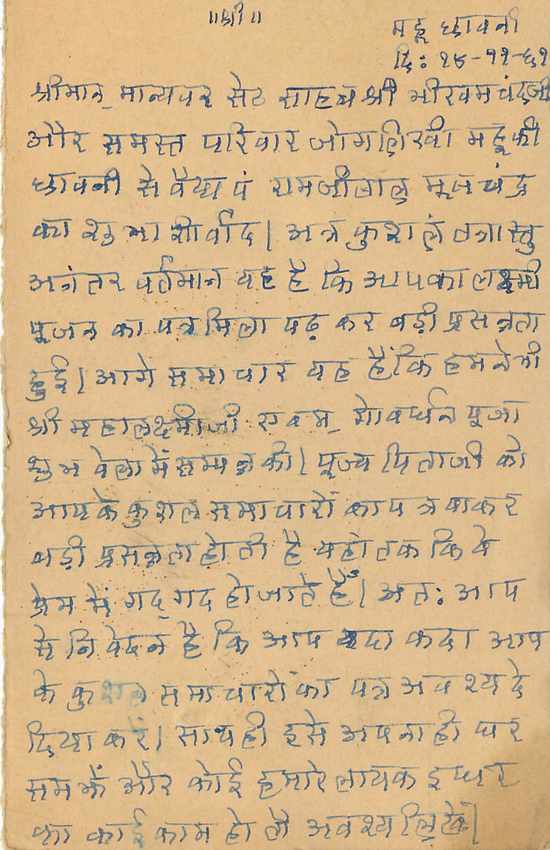 ॥श्री॥
महू छावनी
दि: १५-११-६१
श्रीमान् मान्यवर सेठ साहब श्री भीखमचंदजी
और समस्त परिवार जोग लिखी महू की
छावनी से वैद्य पं रामजीलाल मूलचंद्र
का शुभाशीर्वाद। अत्र कुशलं तत्रास्तु
अनंतर वर्तमान यह है कि आपका लक्ष्मी
पूजन का पत्र मिला पढ़ कर बड़ी प्रसन्नता
हुई। आगे समाचार यह है कि हमने भी
श्री महालक्ष्मीजी एवम् गोवर्धन पूजा
शुभ वेला में सम्पन्न की। पूज्य पिताजी को
आपके कुशल समाचारों का पत्र पाकर
बड़ी प्रसन्नता होती है यहां तक कि वे
प्रेम में गद्गद हो जाते हैं। अत: आप
से निवेदन है कि आप यदा कदा आप
के कुशल समाचारों का पत्र अवश्य दे
दिया करें। साथ ही इसे अपना ही घर
समझें और कोई हमारे लायक इधर
का काई काम हो तो अवश्य लिखें।